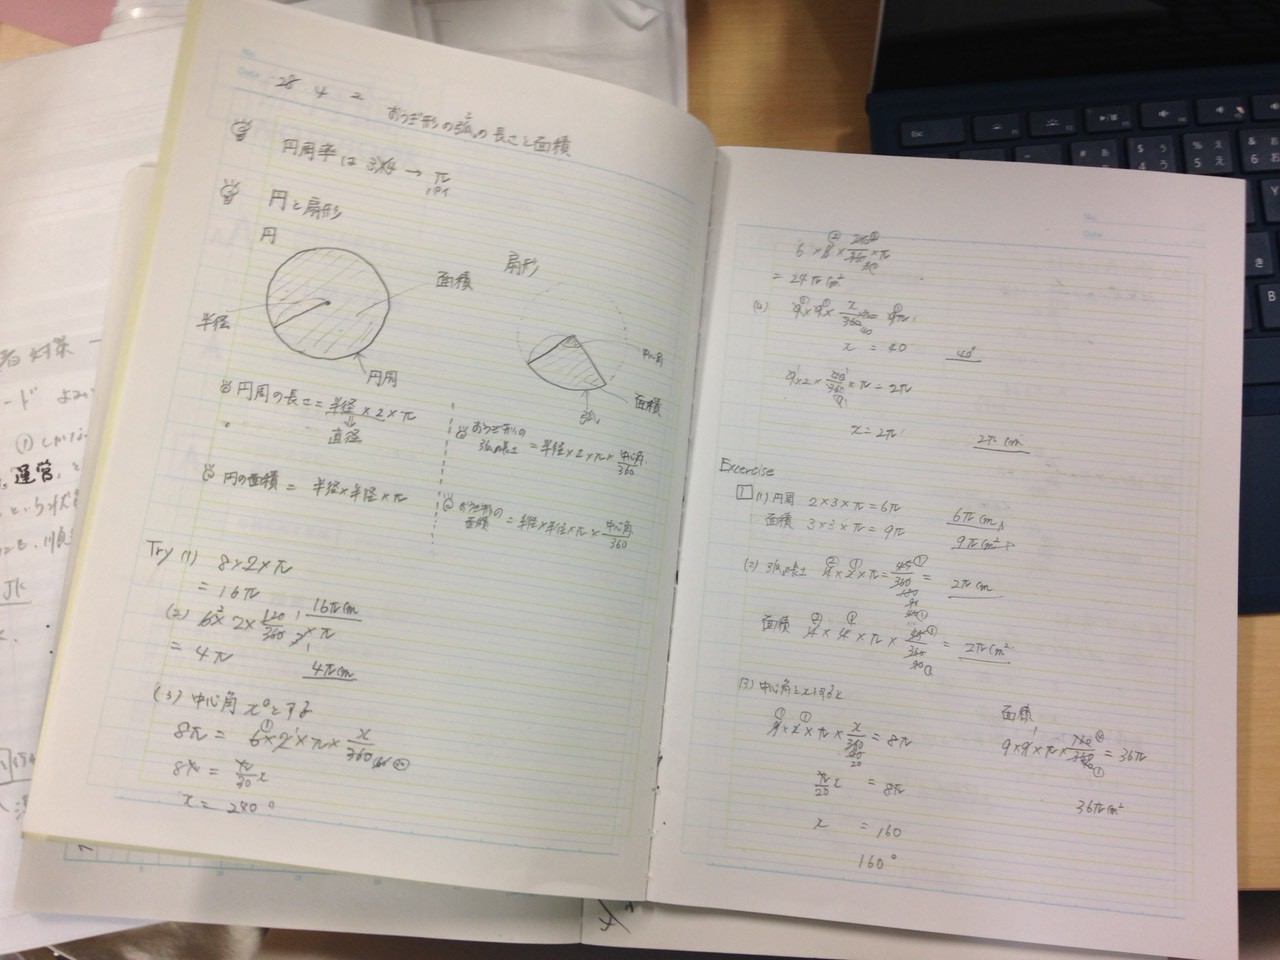 28 4 2
おうぎ形の弧の長さと面積
円周率は 3.14 → π
パイ
円と扇形
円
面積
半径
円周
扇形
中心角
面積
弧
円周の長さ = 半径 × 2 × π
直径
円の面積 = 半径×半径×π
おうぎ形の
弧の長さ = 半径×2×π×中心角/360
おうぎ形の
面積 = 半径×半径×π×中心角/360
Try (1) 8×2×π
= 16π
16πcm
(2) 6×2×120/360×π
= 4π
4πcm
(3) 中心角 x°とする
8π = 6×2×π×x/360
8π = π/30 x
x = 240°
6×6×240/360×π
= 24πcm²
(4) 9×9×x/360 π = 9π
x = 40
40°
9×2×40/360×π = 2π
x = 2π
2πcm
Excercise
1 (1) 円周 2×3×π = 6π
6πcm
面積 3×3×π = 9π
9πcm²
(2) 弧の長さ 4×2×π = 45/360 =
2πcm
面積 4×4×π×45/360 = 2πcm²
(3) 中心角をxとすると
9×2×π×x/360 = 8π
π/20 x = 8π
x = 160
160°
面積
9×9×π×160/360 = 36π
36πcm²
者対策
ード
① しかし
運営
という状
JK
esc